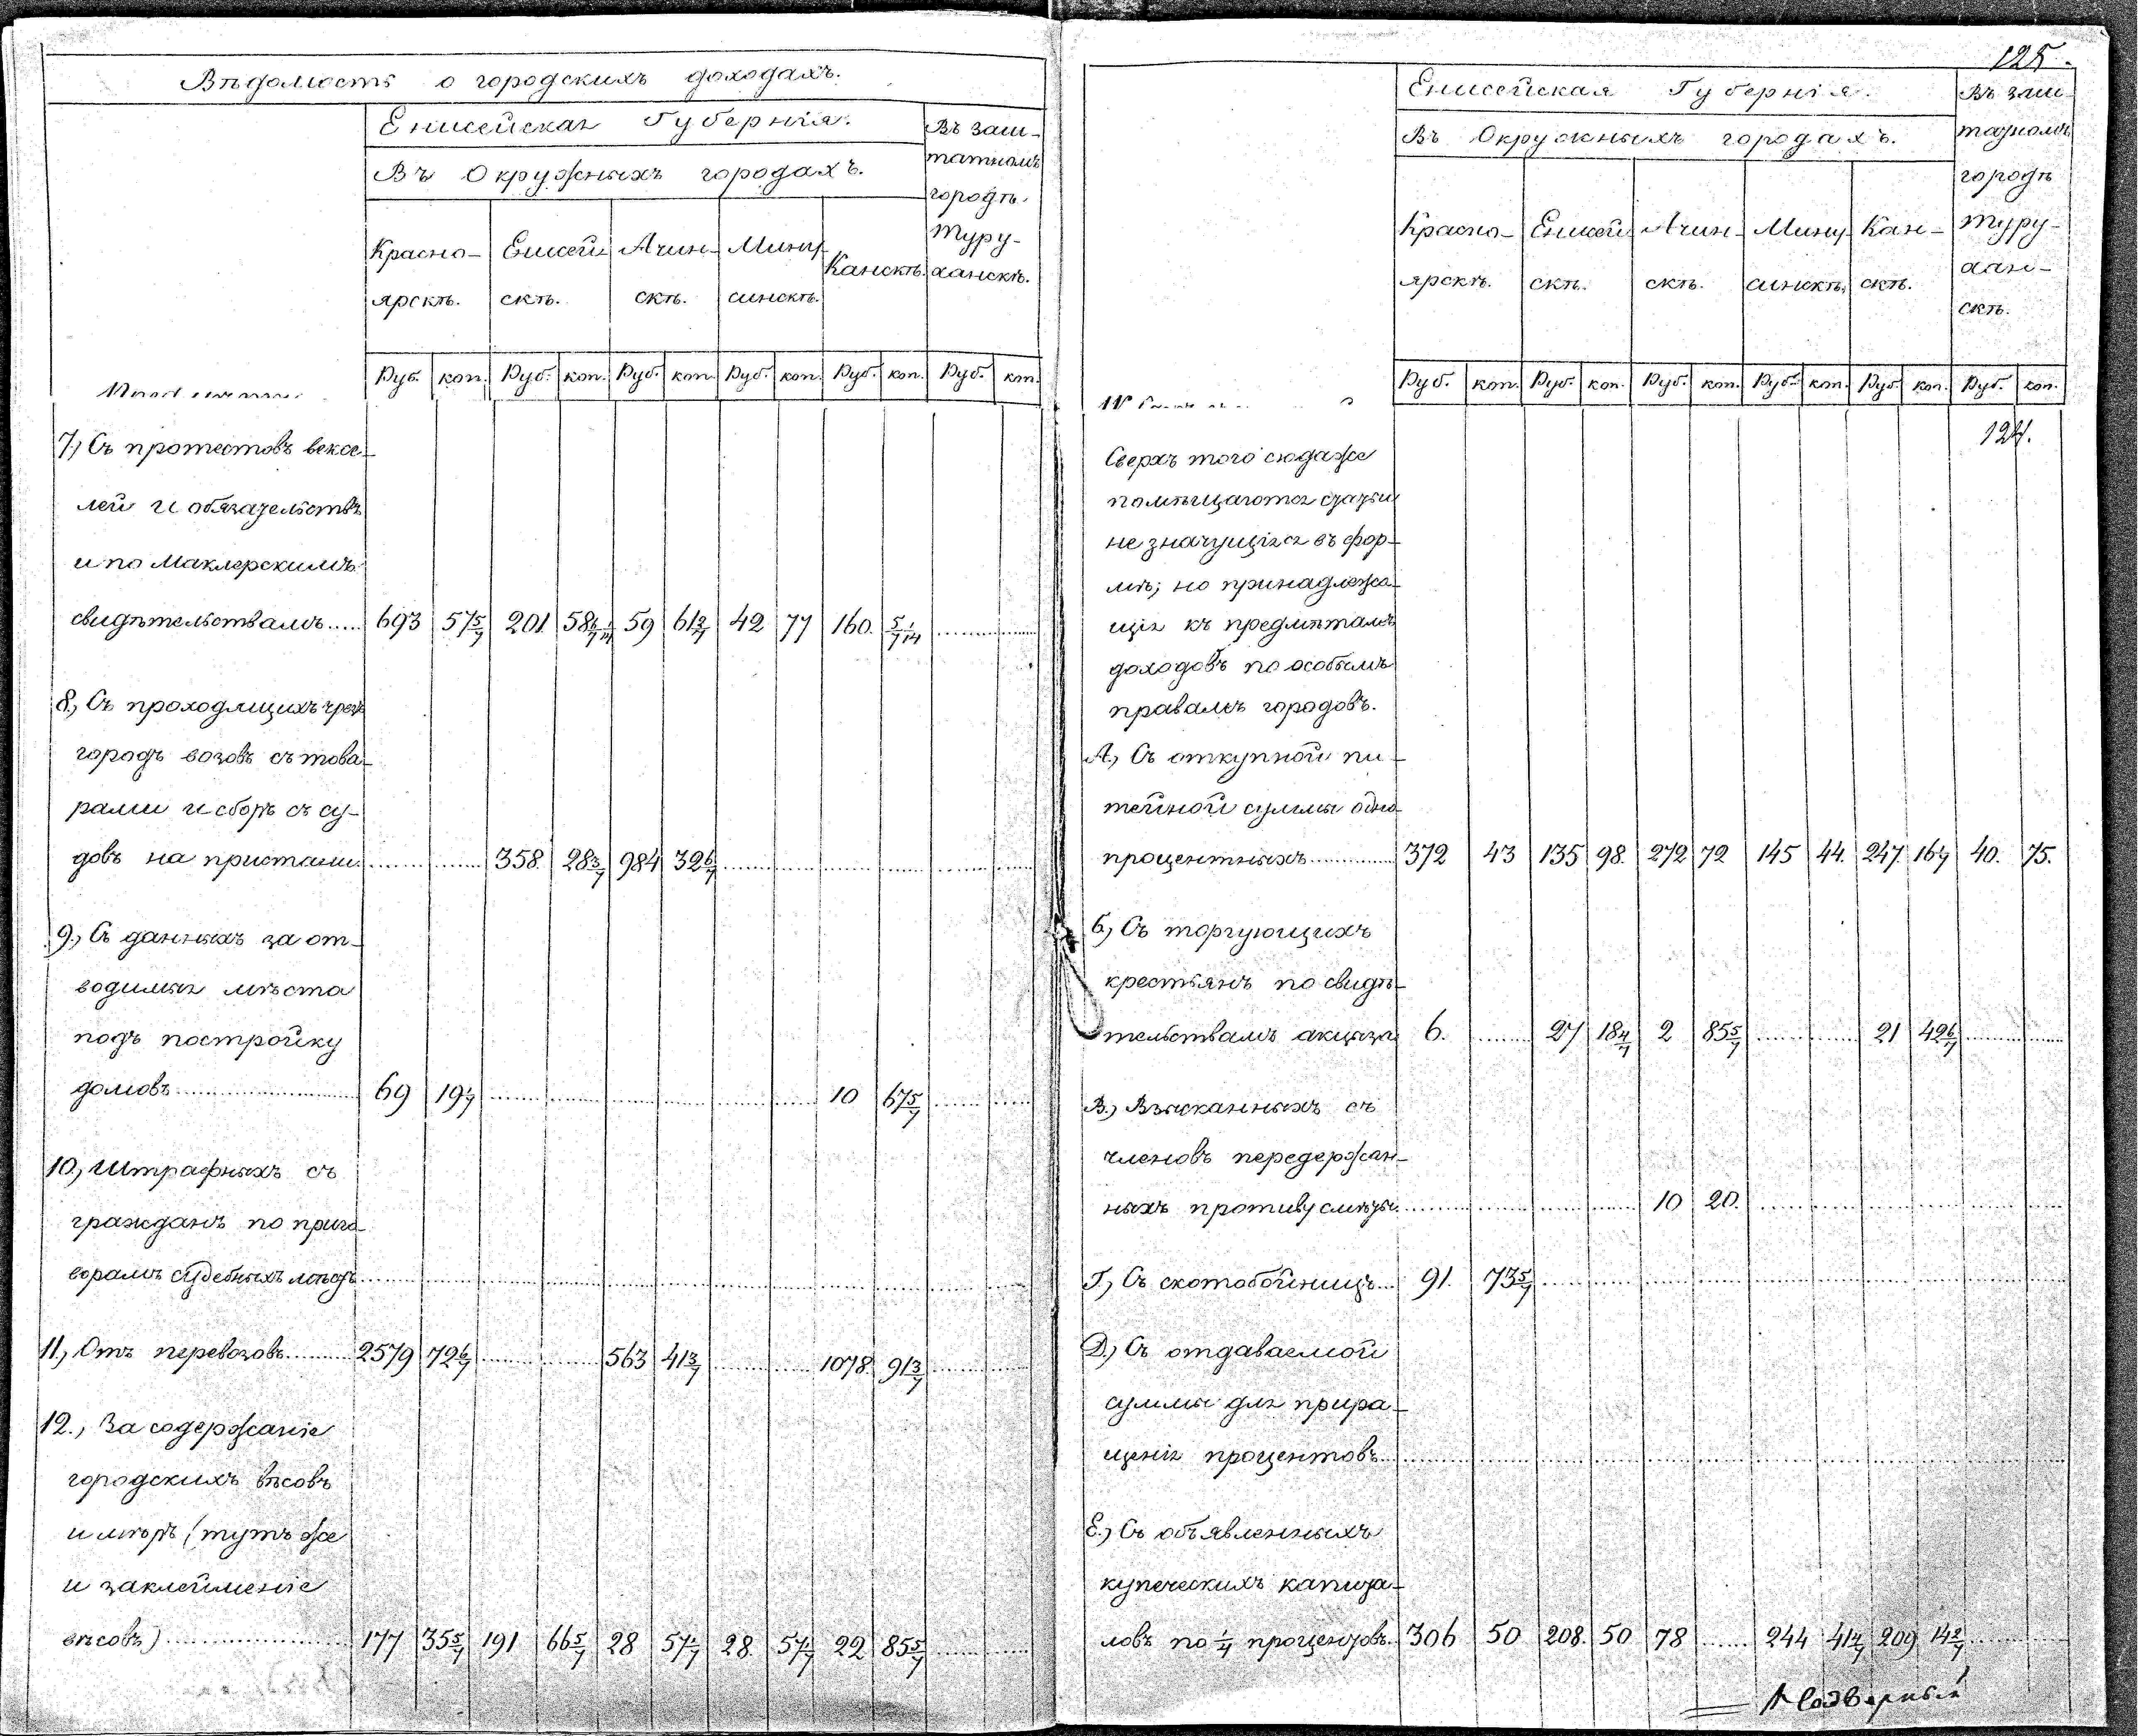 Вѣдомость о городскихъ доходахъ.
Енисейская Губернія.
Въ Окружныхъ городахъ.
Въ заш-
татномъ
городѣ
Туру-
ханскѣ.
Красно- Енисей- Ачин- Мину-
ярскѣ. скѣ. скѣ. синскѣ. Канскѣ.
Руб. коп. Руб. коп. Руб. коп. Руб. коп. Руб. коп. Руб. коп.
7., Съ протестовъ вексе-
лей и обязательствъ
и по Маклерскимъ
свидѣтельствамъ..... 693 57 5/7 201. 58 6/7 1/14 59 61 2/7 42 77 160. 5/7 1/14
8., Съ проходящихъ чрезъ
городъ возовъ съ това-
рами и сборъ съ су-
довъ на пристани. 358. 28 3/7 984 32 6/7
9., Съ данныхъ за от-
водимыя мѣста
подъ постройку
домовъ 69 19 1/7 10 67 5/7
10., Штрафныхъ съ
гражданъ по приго-
ворамъ судебныхъ мѣстъ
11., Отъ перевозовъ 2579 72 6/7 563 41 3/7 1078. 91 3/7
12., За содержаніе
городскихъ вѣсовъ
и мѣръ (тутъ же
и заклейменіе
вѣсовъ) 177 35 5/7 191 66 5/7 28 57 1/7 28. 57 1/7 22 85 5/7
125.
Енисейская Губернія.
Въ Окружныхъ городахъ.
Въ заш-
татномъ
городѣ
Туру-
хан-
скѣ.
Красно- Енисей- Ачин- Мину- Кан-
ярскѣ. скѣ. скѣ. синскѣ. скѣ.
Руб. коп. Руб. коп. Руб. коп. Руб. коп. Руб. коп. Руб. коп.
124.
Сверхъ того сюда же
помѣщаются статьи
не значущіяся въ фор-
мѣ; но принадлежа-
щія къ предмѣтамъ
доходовъ по особымъ
правамъ городовъ.
А., Съ откупной пи-
тейной суммы одно-
процентныхъ 372 43 135 98. 272 72 145 44. 247 16 4/7 40. 75.
Б., Съ торгующихъ
крестьянъ по свидѣ-
тельствамъ акциза 6. 27 18 4/7 2 85 5/7 21 42 6/7
В., Взысканныхъ съ
членовъ передержан-
ныхъ противу смѣты 10 20.
Г., Съ скотобойницъ 91. 73 5/7
Д., Съ отдаваемой
суммы для прира-
щенія процентовъ
Е., Съ объявленныхъ
купеческихъ капита-
ловъ по 1/4 процентовъ 306 50 208. 50 78 244 41 4/7 209 14 2/7